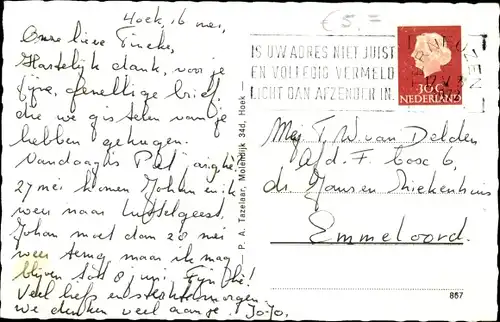 Hoek, 16 mei,
Onze lieve Fineke,
Hartelijk dank, voor je
fijne, gezellige brief
die we gisteren van je
hebben gekregen.
Vandaag is Piet jarig!
27 mei komen Johan en ik
weer naar Luttelgeest,
Johan moet dan 28 mei
weer terug maar ik mag
blijven tot 8 juni. Fijn hè!
Veel liefs
we denken veel aan je. Jo-Jo.
P. A. Tazelaar, Molendijk 34d, Hoek
€ 5,=
IS UW ADRES NIET JUIST
EN VOLLEDIG VERMELD
LICHT DAN AFZENDER IN.
30c
NEDERLAND
Mej. T. W. van Delden
Afd. F. box 6,
dr. Jansen Ziekenhuis
Emmeloord.
867